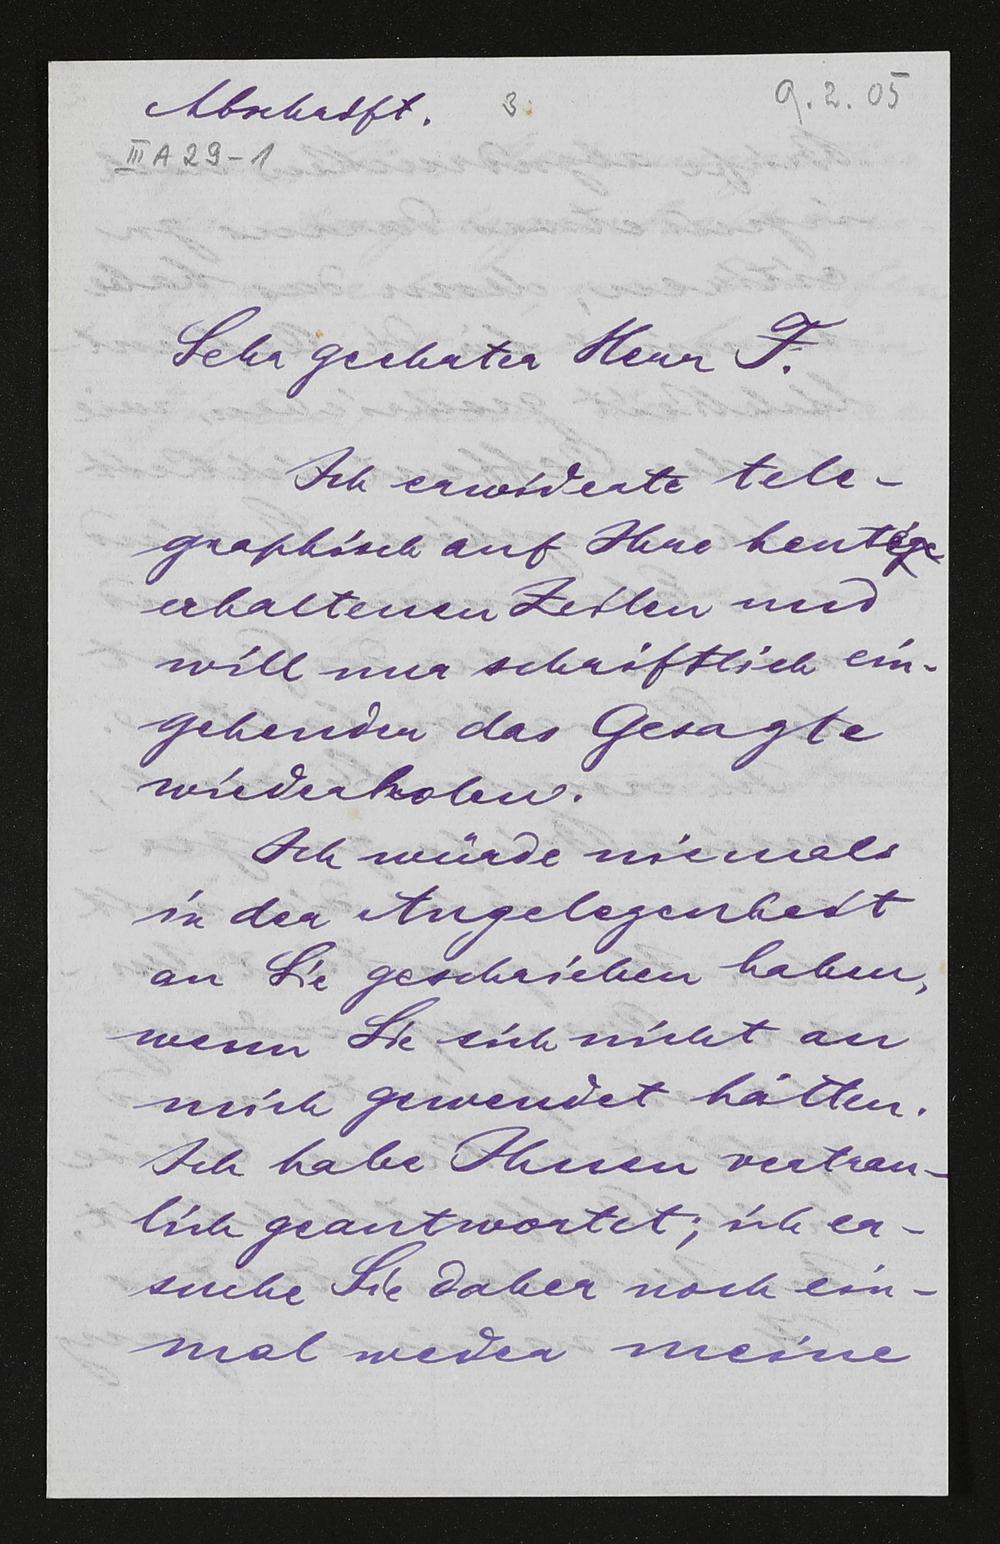 Abschrift. 3 9.2.05
III A 29-1
Sehr geehrter Herr F.
Ich erwiderte tele-
graphisch auf Ihre heutige
erhaltenen Zeilen und
will nur schriftlich ein-
gehender das Gesagte
wiederholen.
Ich würde niemals
in der Angelegenheit
an Sie geschrieben haben,
wenn Sie sich nicht an
mich gewendet hätten.
Ich habe Ihnen vertrau-
lich geantwortet; ich er-
suche Sie daher noch ein-
mal weder meine